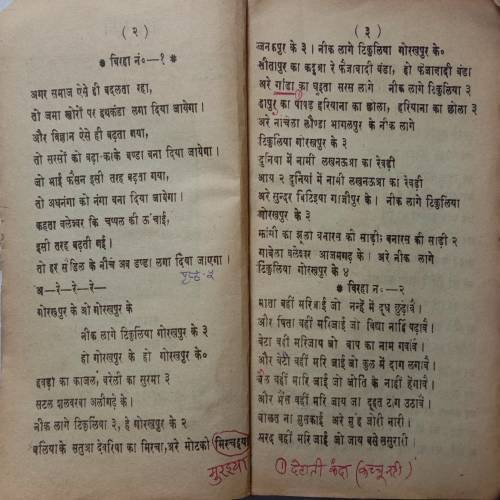 ( २ )
* बिरहा नं०—१ *
अगर समाज ऐसे ही बदलता रहा,
तो जमा खोरों पर हथकंडा लगा दिया जायेगा।
और विज्ञान ऐसे ही बढ़ता गया,
तो सरसों को बढ़ा-काके बण्डा बना दिया जायेगा।
जो भाई फैसन इसी तरह बढ़ता गया,
तो अधनंगा को नंगा बना दिया जायेगा।
कहता वलेश्वर कि चप्पल की ऊंचाई,
इसी तरह बढ़ती गई।
तो हर सेंडिल के नीचे अब डण्डा लगा दिया जाएगा।
अ—रे—रे—रे—
गोरखपुर के ओ गोरखपुर के
नीक लागे टिकुलिया गोरखपुर के ३
हो गोरखपुर के हो गोरखपुर के०
हवड़ा का काजल, बरेली का सुरमा ३
सटल शलवरवा अलीगढ़े के।
नीक लागे टिकुलिया ३, हे गोरखपुर के २
बलियाके सतुआ देवरिया का मिरचा, अरे मोटकी मिरचइया
मुरइया
( ३ )
जनकपुर के ३। नीक लागे टिकुलिया गोरखपुर के०
सीतापुर का कदुआ रे फैजाबादी बंडा, हो फैजाबादी बंडा
अरे गांडा का घुइता सरस लागे। नीक लागे टिकुलिया ३
हापुर का पापड़ हरियाना का छोला, हरियाना का छोला ३
अरे नाचेला लौण्डा भागलपुर के नीक लागे
टिकुलिया गोरखपुर के ३
दुनिया में नामी लखनऊआ का रेवड़ी
आय २ दुनियां में नामी लखनऊआ का रेवड़ी
अरे सुन्दर बिटिइया गाजीपुर के। नीक लागे टिकुलिया
गोरखपुर के ३
झांसी का झूला बनारस की साड़ी; बनारस की साड़ी २
गावेला वलेश्वर आजमगढ़ के। अरे नीक लागे
टिकुलिया गोरखपुर के ४
* बिरहा नं०—२
माता वहीं मरिजाई जो नन्हें में दूध छुड़ावै।
और पिता वहीं मरिजाई जो विद्या नाहिं पढ़ावै।
बेटा वहीं मरिजाय जो बाप का नाम गवांवै।
और बेटी वहीं मरि जाई जो कुल में दाग लगावै।
बैल वहीं मरि जाई जो जोति के नाहीं हेंगावै।
और भैंस वहीं मरि जाय जा दूहत टांग उठावै।
बोलत ना मुसकाई अरे मुंह जोरी नारी।
मरद वहीं मरिजाई जो जाय बसे ससुरारी।
① देहाती कंदा (कच्चू नहीं)